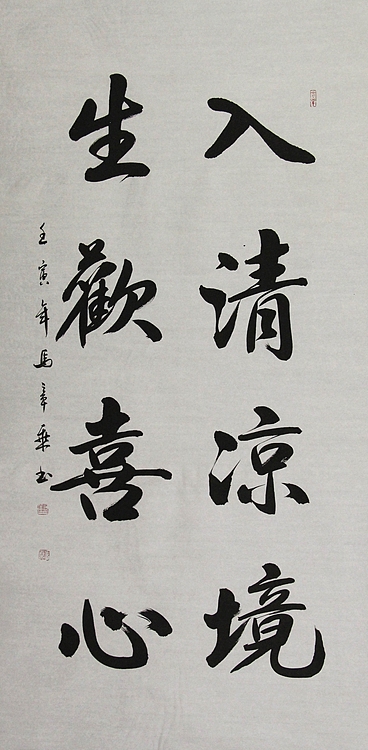 入清凉境
生歡喜心
壬寅年馬章乘书